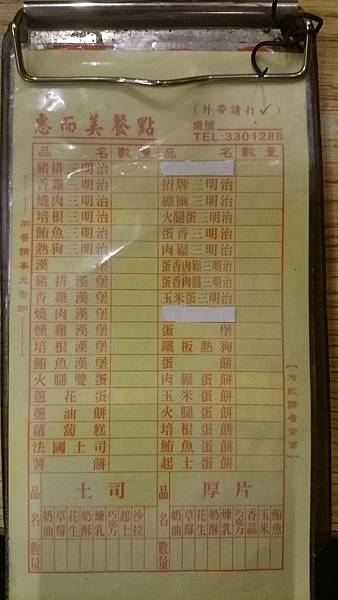 (外帶請打✓)
惠而美餐點
桌號
TEL:3301288
品名 數量 品名 數量
豬排三明治
香雞三明治 招牌三明治
燒肉三明治 總匯三明治
培根三明治 火腿蛋三明治
鮪魚三明治 蛋香三明治
熱狗三明治 肉鬆三明治
漢堡 蛋香肉鬆三明治
豬排漢堡 蛋香肉醬三明治
香雞漢堡 玉米蛋三明治
燒肉漢堡
燻雞漢堡 蛋堡
培根漢堡 鐵板熱狗
鮪魚漢堡 蛋餅
火腿雙蛋 肉鬆蛋餅
蔥花蛋 玉米蛋餅
蔥油餅 火腿蛋餅
蘿蔔糕 培根蛋餅
法國土司 鮪魚蛋餅
薯餅 起士蛋餅
加蛋請事先告知
【冷飲請看背面】
品名 土司 厚片
奶油 草莓 花生 奶酥 煉乳 巧克力 起士 沙拉
奶油 草莓 花生 奶酥 煉乳 巧克力 香蒜 玉米 鮪魚
數量